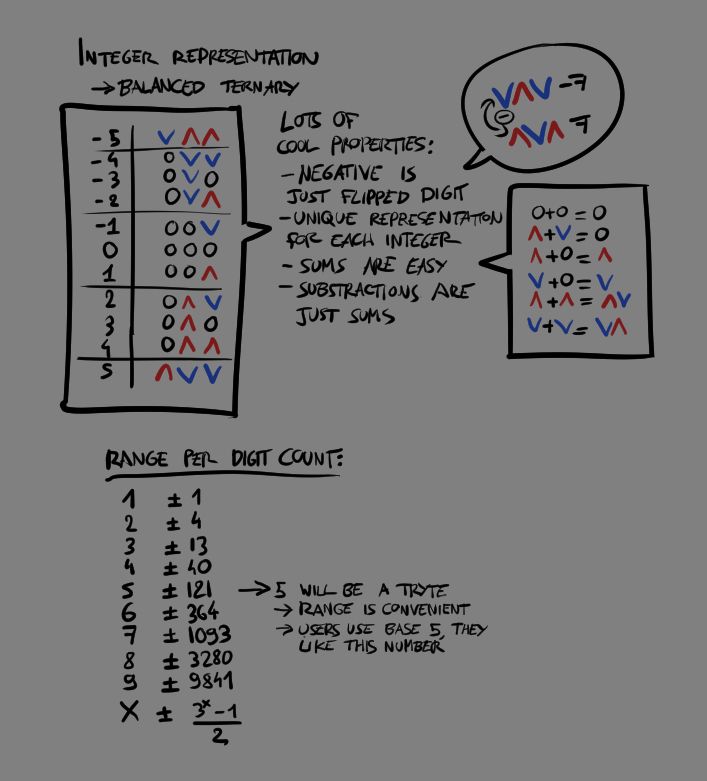 INTEGER REPRESENTATION
→ BALANCED TERNARY
-5 V Λ Λ
-4 0 V V
-3 0 V 0
-2 0 V Λ
-1 0 0 V
0 0 0 0
1 0 0 Λ
2 0 Λ V
3 0 Λ 0
4 0 Λ Λ
5 Λ V V
LOTS OF
COOL PROPERTIES:
- NEGATIVE IS
JUST FLIPPED DIGIT
- UNIQUE REPRESENTATION
FOR EACH INTEGER
- SUMS ARE EASY
- SUBSTRACTIONS ARE
JUST SUMS
VΛV -7
-
ΛVΛ 7
0+0 = 0
Λ+V = 0
Λ+0 = Λ
V+0 = V
Λ+Λ = ΛV
V+V = VΛ
RANGE PER DIGIT COUNT:
1 ± 1
2 ± 4
3 ± 13
4 ± 40
5 ± 121 → 5 WILL BE A TRYTE
→ RANGE IS CONVENIENT
→ USERS USE BASE 5, THEY
LIKE THIS NUMBER
6 ± 364
7 ± 1093
8 ± 3280
9 ± 9841
X ± 3ˣ-1
2